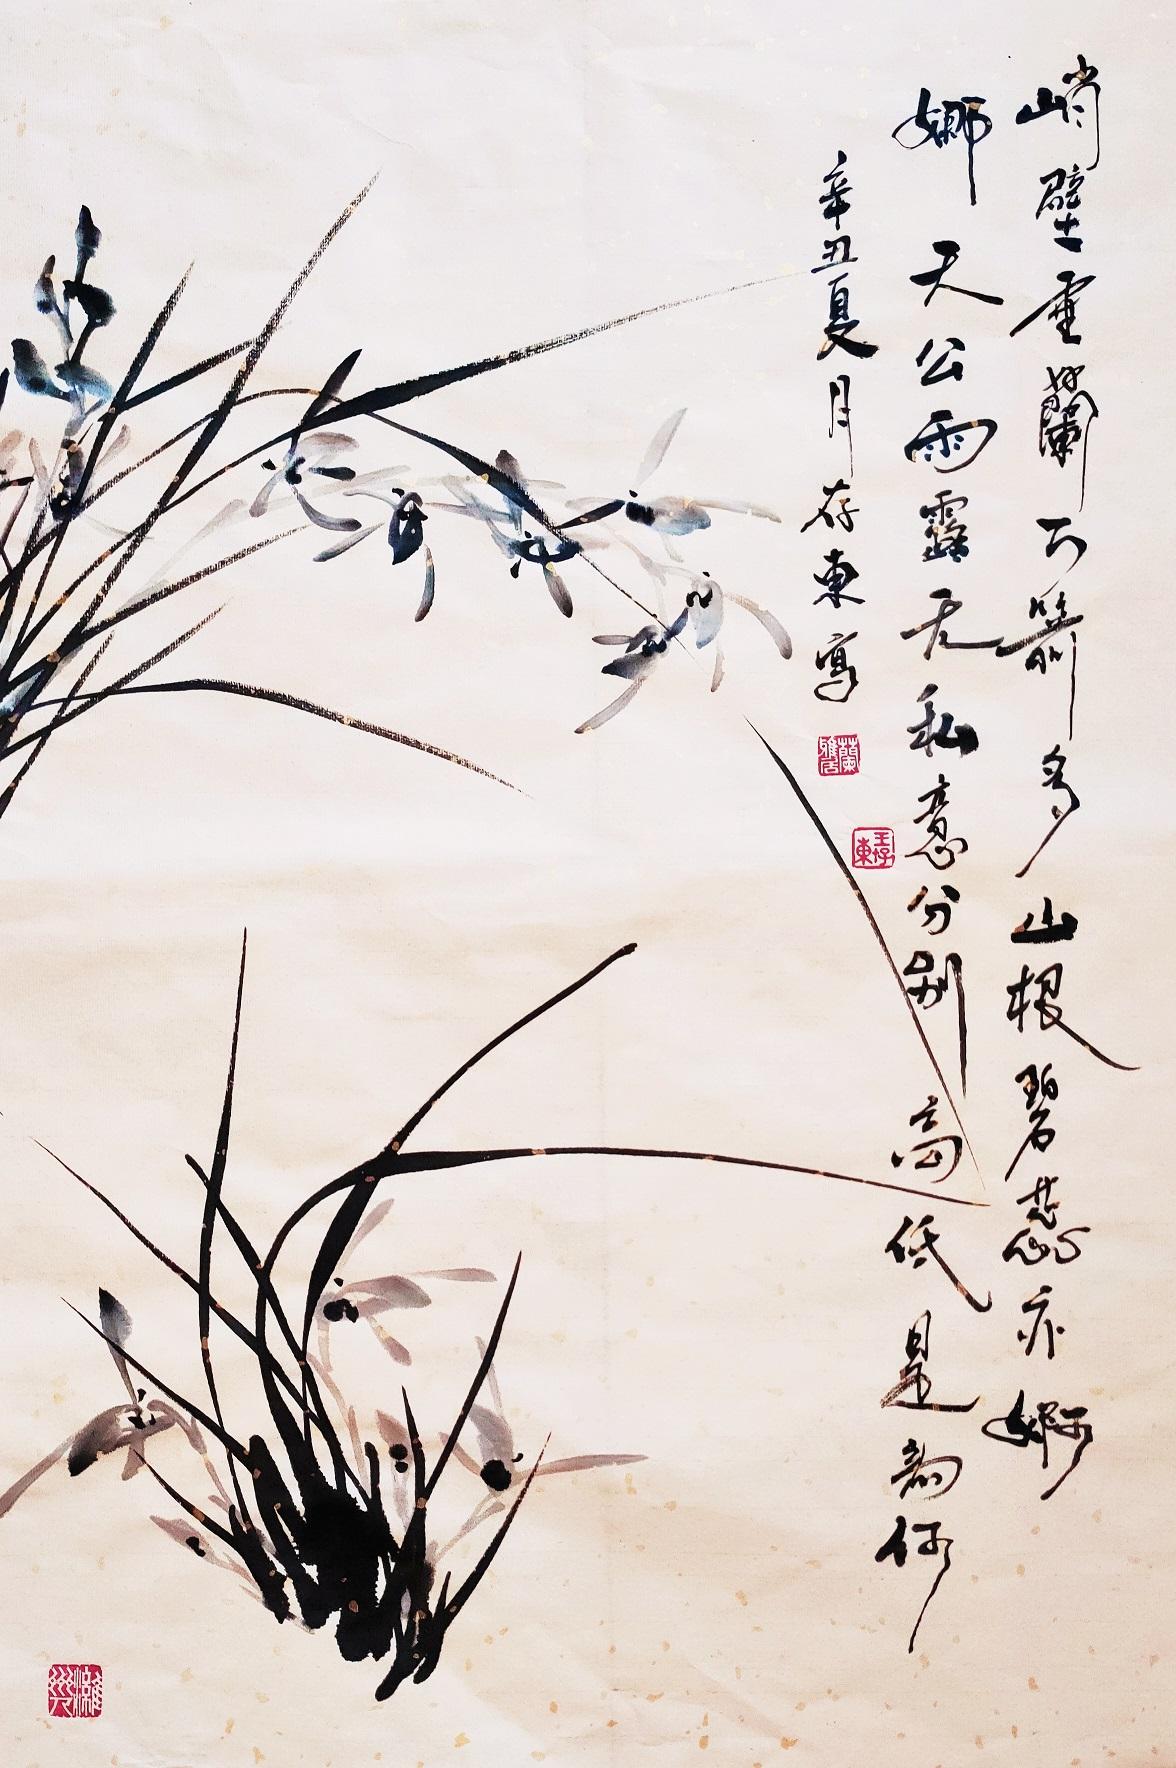 峭壁垂蘭万箭多山根碧蕊亦婀
娜天公雨露无私意分别高低是為何
辛丑夏月存東寫
蘭雅居
王存東